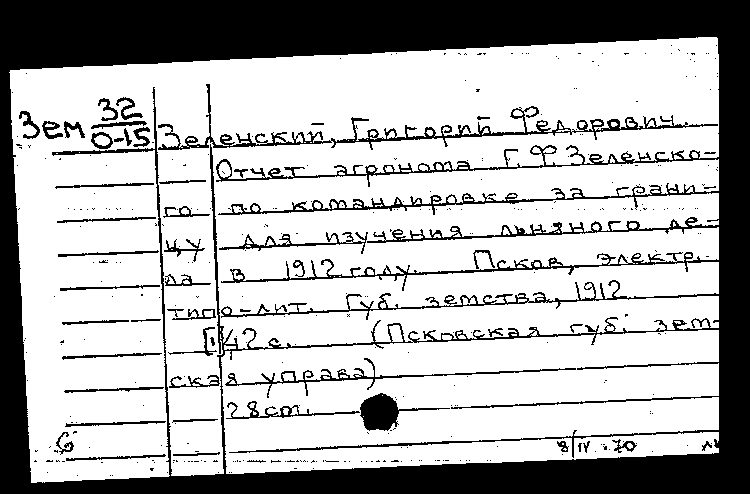 Зем 32/0-15 Зеленский, Григорий Федорович.
Отчет агронома Г. Ф. Зеленско-
го по командировке за грани-
цу для изучения льняного де-
ла в 1912 году. Псков, электр.
типо-лит. Губ. земства, 1912
[1],42 с. (Псковская губ. зем-
ская управа).
28 cm.
8/IV-70